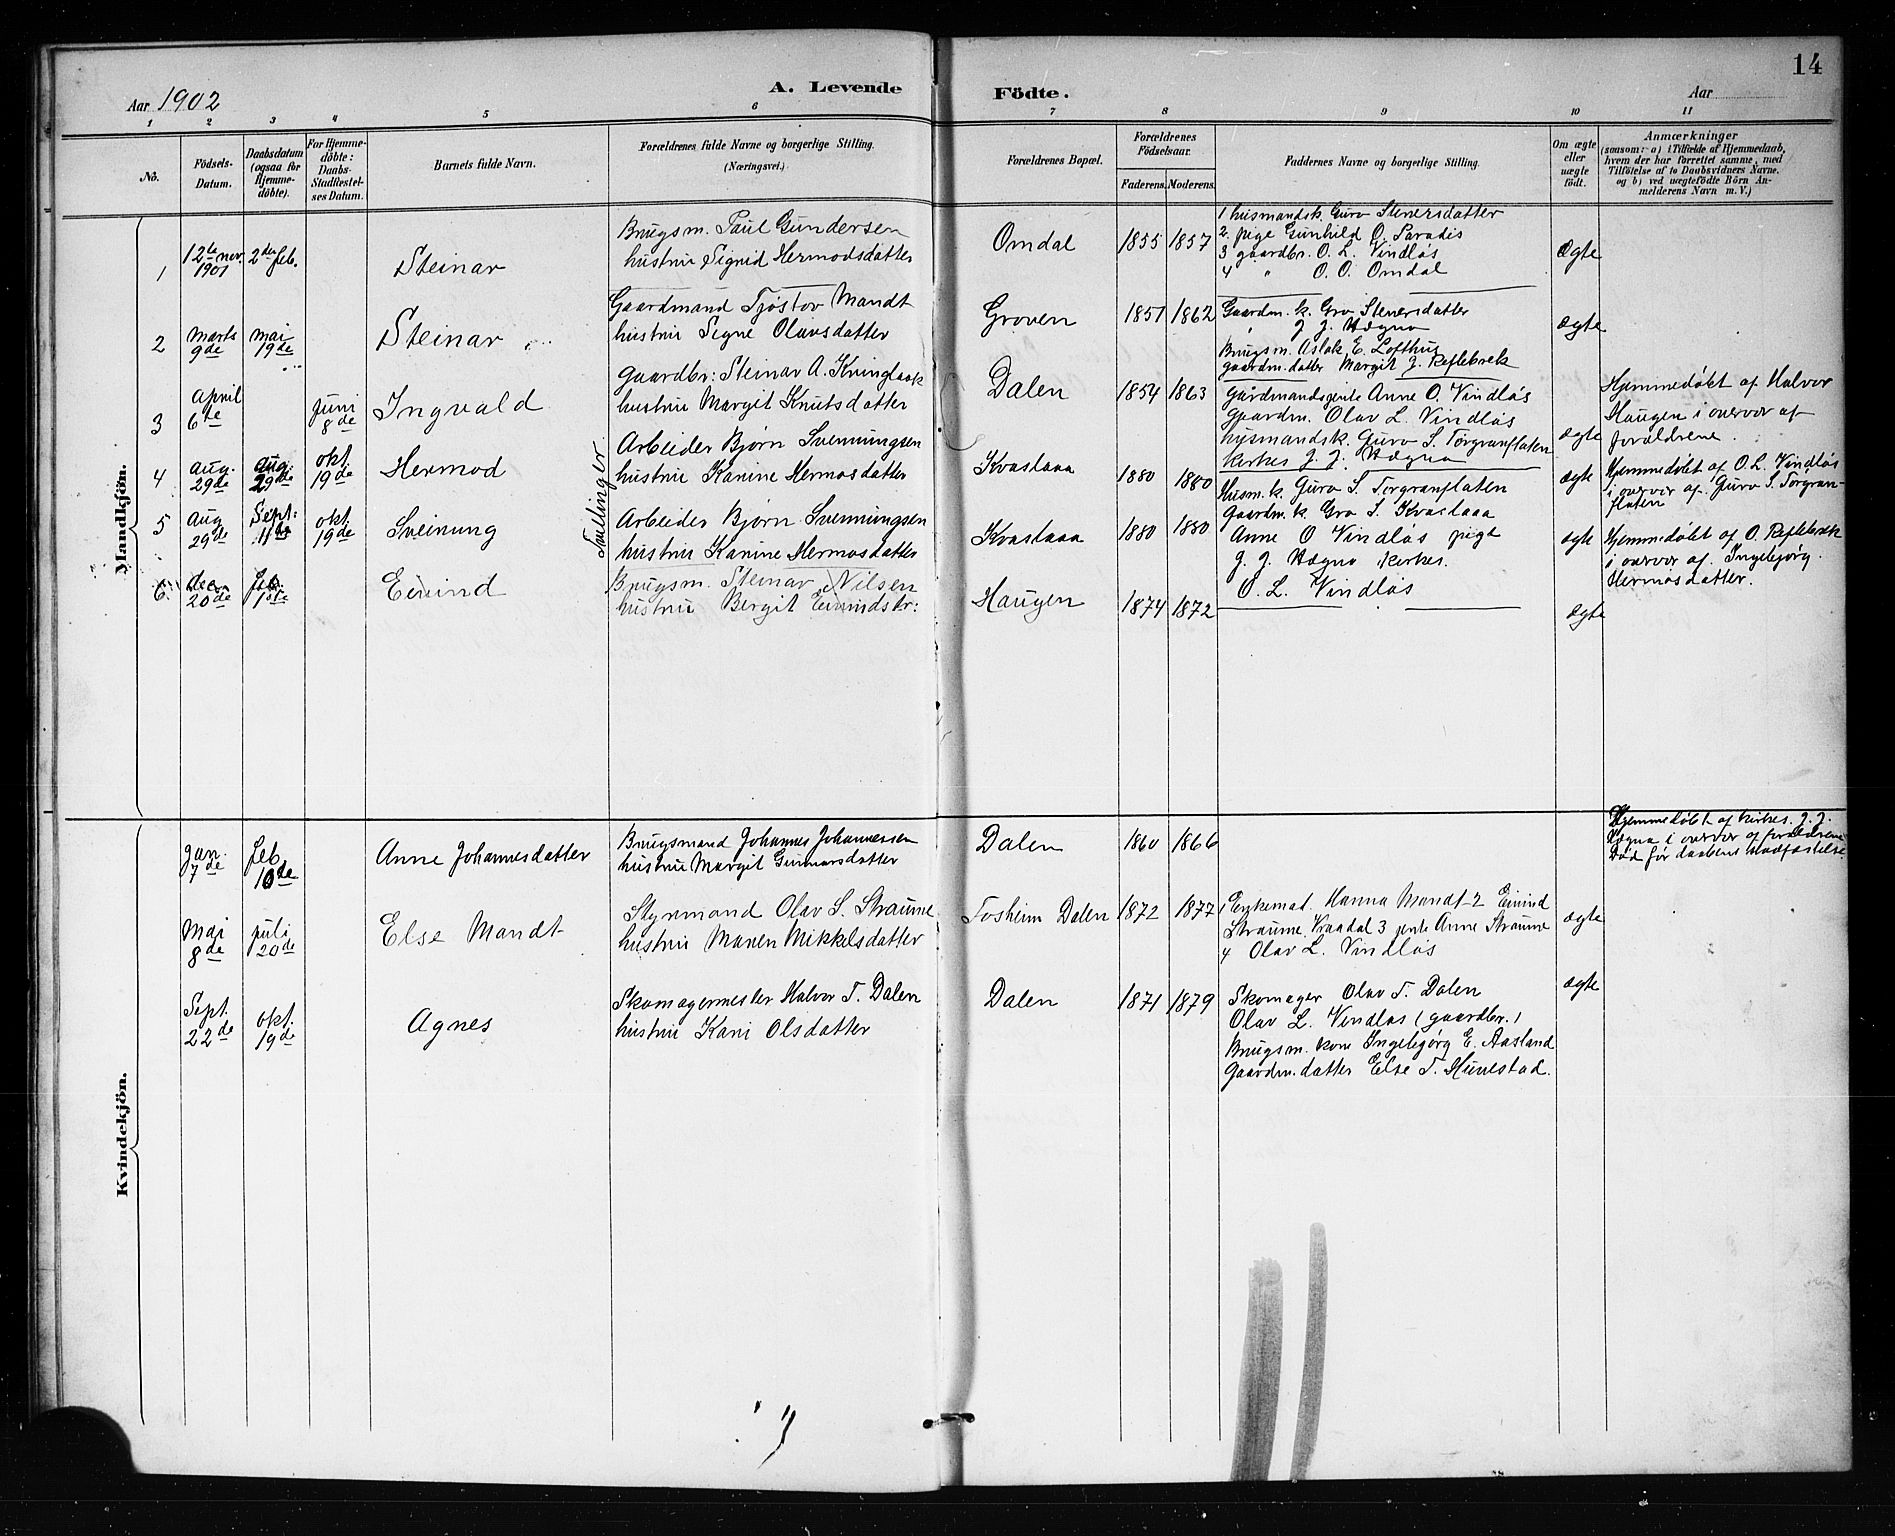 14
Aar 1902
A. Levende
Födte.
Aar
1 2 3 4 5 6 7 8 9 10 11
No.
Födsels-
Datum.
Daabsdatum
(ogsaa for
Hjemme-
döbte).
For Hjemme-
döbte:
Daabs-
Stadfæstel-
ses Datum.
Barnets fulde Navn.
Forældrenes fulde Navne og borgerlige Stilling.
(Næringsvei.)
Forældrenes Bopæl.
Forældrenes
Födselsaar.
Faderens. Moderens.
Faddernes Navne og borgerlige Stilling.
Om ægte
eller
uægte
födt.
Anmærkninger
(saasom: a) i Tilfælde af Hjemmedaab,
hvem der har forrettet samme, med
Tilföielse af to Daabsvidners Navne.
og b) ved uægtefödte Börn An-
melderens Navn m. V.)
Mandkjön.
1
12te nov.
1901
2den feb.
Steinar
Brugsm. Paul Gundersen
hustru Sigrid Hermodsdatter
Omdal
1855 1857
1 husmandsk. Guro Stenersdatter
2. pige Gunhild O. Paradis
3 gaardbr. O. L. Vindlås
4 " O. O. Omdal
Ægte
2
Marts
9de
mai
19de
Steinar
Gaardmand Tjøstov Mandt
hustru Signe Olavsdatter
Groven
1851 1862
Gaardm. k. Gro Stenersdatter
" J. J. Vægna
Brugsm. Aslak E. Lofthus
gaardm. datter Margit J. Reflebrek
ægte
3
April
6te
juni
8de
Ingvald
gaardbr: Steinar A. Kvinglaak
hustru Margit Knutsdatter
Dalen
1854 1863
Gårdmandsgente Anne O. Vindlås
gaardm. Olav L. Vindlås
husmandsk. Guro S. Torgranflaten
kirkes J. J. Vægna
ægte
Hjemmedøbt af Halvor
Haugen i overvær af
forældrene.
4
aug.
29de
aug.
29de
okt.
19de
Hermod
Tvillinger
Arbeider Bjørn Svenningsen
hustru Kanine Hermosdatter
Kvaslaaa
1880 1880
Husm. k. Guro S. Torgranflaten
Gaardm. k. Gro S. Kvaslaaa
ægte
Hjemmedøbt af O. L. Vindlås
i overvær af Guro S. Torgran-
flaten
5
Aug
29de
Sept:
11te
okt.
19de
Sveinung
Arbeider Bjørn Svenningsen
hustru Kanine Hermosdatter
Kvaslaaa
1880 1880
Anne O Vindlås pige
J. J. Vægna kirkes.
O. L. Vindlås
ægte
Hjemmedøbt af O. Reflebrek
i overvær af Ingebjørg
Hermosdatter.
6.
dec.
20de
feb.
1ste
Eivind
Brugsm. Steinar Nilsen
hustru Bergit Eivindsdr:
Haugen
1874 1872
ægte
Kvindekjön.
jan.
7de
feb.
10de
Anne Johannesdatter
Brugsmand Johannes Johannessen
hustru Margit Gunnarsdatter
Dalen
1860 1866
Hjemmedøbt af kirkes. J. J.
Vægna i overvær af forældrene
Død før daabens stadfæstelse
Mai
8de
juli
20de
Else Mandt
Styrmand Olav S. Straume
hustru Maren Mikkelsdatter
Fosheim Dalen
1872 1877
1 Enkemad. Hanna Mandt 2 Eivind
Straume, Vraadal 3 jente Anne Straume
4 Olav L. Vindlås
ægte
Sept.
22de
okt.
19de
Agnes
Skomagermester Halvor T. Dalen
hustru Kari Olsdatter
Dalen
1871 1879
Skomager Olav T. Dalen
Olav L. Vindlas (gaardbr.)
Brugsm. kone Ingebjørg E. Aasland
gaardm. datter Else T. Hunestad.
ægte